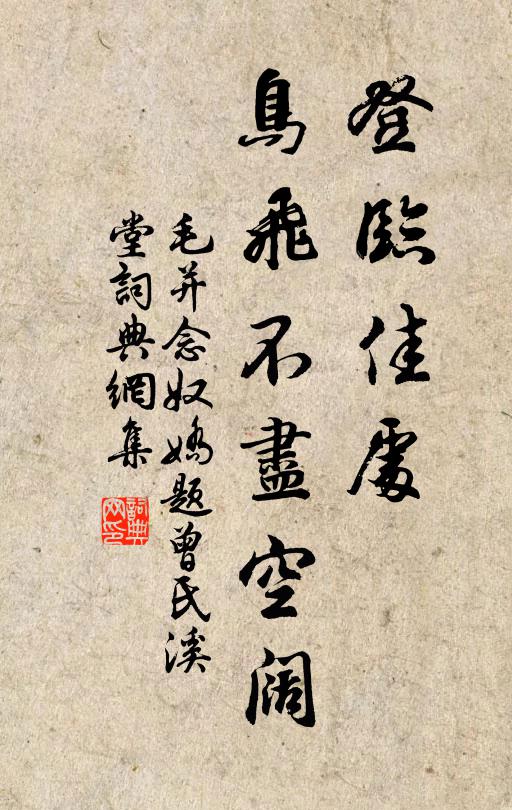 登臨佳處
鳥飛不盡空闊
毛并念奴嬌題曾氏溪
堂詞典網集
詞典
网印